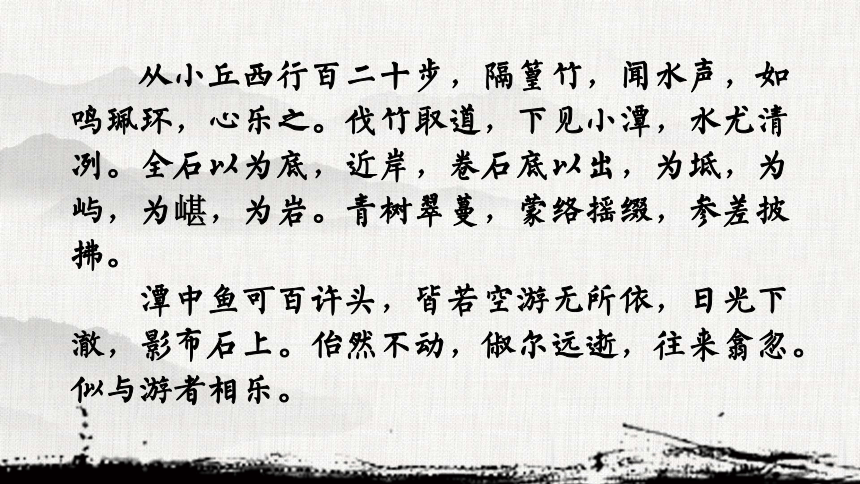 从小丘西行百二十步，隔篁竹，闻水声，如
鸣珮环，心乐之。伐竹取道，下见小潭，水尤清
冽。全石以为底，近岸，卷石底以出，为坻，为
屿，为嵁，为岩。青树翠蔓，蒙络摇缀，参差披
拂。
潭中鱼可百许头，皆若空游无所依，日光下
澈，影布石上。佁然不动，俶尔远逝，往来翕忽。
似与游者相乐。